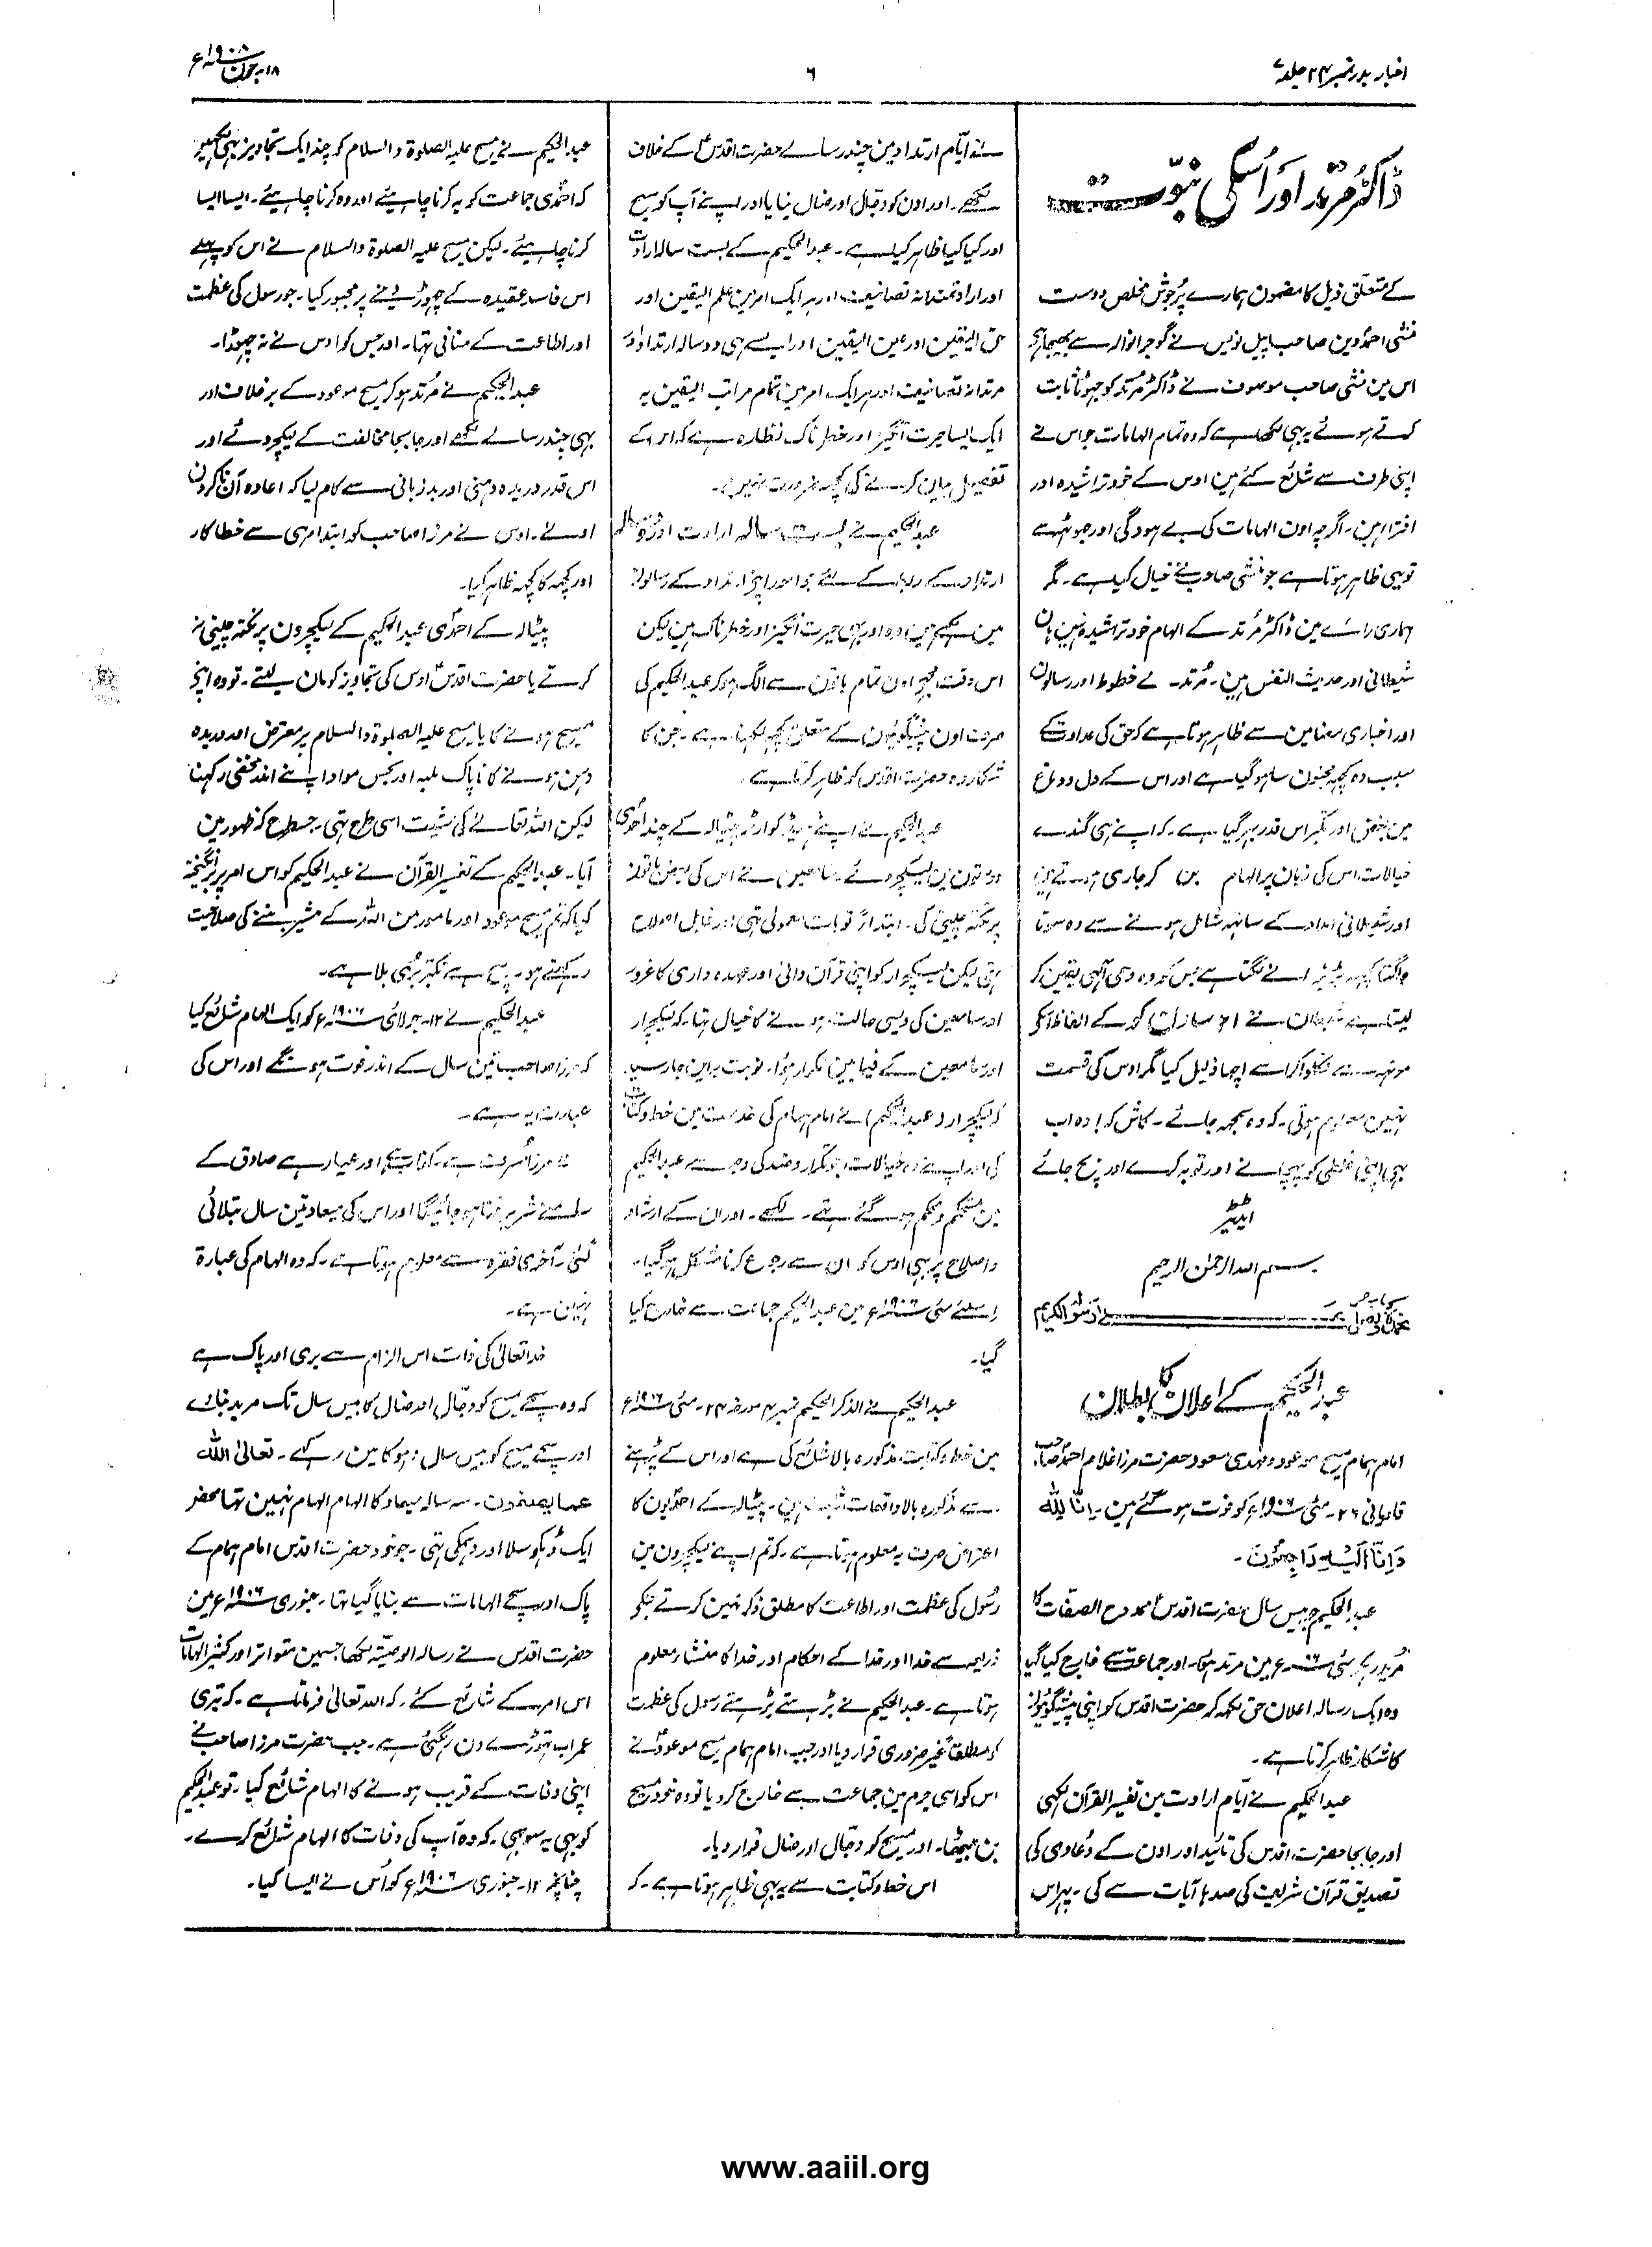 اخبار بدر نمبر ۲۴ جلد ۷
۶
۱۸- جون ۱۹۰۸ء
ڈاکٹر مرتد اور اُسکی نبوّت
کے متعلق ذیل کا مضمون ہمارے پُرجوش مخلص دوست
منشی احمد دین صاحب اپیل نویس نے گوجرانوالہ سے بھیجا ہے
اس مین منشی صاحب موصوف نے ڈاکٹر مرتد کو جہوٹا ثابت
کرتے ہوئے یہ بہی لکھا ہے کہ وہ تمام الہامات جو اس نے
اپنی طرف سے شائع کئے ہین اوس کے خود تراشیدہ اور
افترا ہین۔ اگرچہ اون الہامات کی بے ہودگی اور جہوٹ سے
تو یہی ظاہر ہوتا ہے جو منشی صاحب نے خیال کیا ہے۔ مگر
ہماری رائے مین ڈاکٹر مُرتد کے الہام خود تراشیدہ نہین ہان
شیطانی اور حدیث النفس ہین۔ مُرتد کے خطوط اور رسالون
اور اخباری مضامین سے ظاہر ہوتا ہے کہ حق کی عداوت کے
سبب وہ کچہہ مجنون سا ہو گیا ہے اور اس کے دل و دماغ
مین بغض اور تکبر اس قدر بہر گیا ہے۔ کہ اپنے ہی گندے
خیالات اس کی زبان پر الہام بن کر جاری ہوتے ہین
اور شیطانی امداد کے ساتہہ شامل ہونے سے وہ سوتا
جاگتا کچہہ بڑبڑانے لگتا ہے جس کو وہ وحی الٰہی یقین کر
لیتا ہے شیطان نے ۲۱ ساون کو کے الفاظ اسکے
مونہہ سے نکلوا کر اسے اچہا ذلیل کیا مگر اوس کی قسمت
نہین معلوم ہوتی۔ کہ وہ سمجہہ جائے۔ کاش کہ وہ اب
بہی اپنی غلطی کو پہچانے اور توبہ کرے اور بچ جائے
ایڈیٹر
بسم اللہ الرحمٰن الرحیم
نحمدہٗ و نصلی علیٰ رسولہ الکریم
عبد الحکیم کے اعلان کا بطلان
امام ہمام مسیح موعود و مہدی مسعود حضرت مرزا غلام احمد صاحب
قادیانی ۲۶۔ مئی ۱۹۰۸ء کو فوت ہو گئے ہین۔ انّا للّٰہ
وَاِنّا اِلَیْہِ رَاجِعُوْنَ۔
عبد الحکیم جو بیس سال حضرت اقدسؑ ممدوح الصفات کا
مُرید رہکر مئی ۱۹۰۶ء مین مرتد ہوا۔ اور جماعت سے خارج کیا گیا
وہ ایک رسالہ اعلان حق لکہہ کر حضرت اقدس کو اپنی پیشگوئیون
کا شکار ظاہر کرتا ہے۔
عبد الحکیم نے ایّام ارادت مین تفسیر القرآن لکہی
اور جا بجا حضرت اقدس کی تائید اور اون کے دعاوی کی
تصدیق قرآن شریف کی صدہا آیات سے کی۔ پہر اس
نے ایّام ارتداد مین چند رسالے حضرت اقدسؑ کے خلاف
لکھے۔ اور اون کو دجال اور ضال بنایا اور اپنے آپ کو مسیح
اور کیا کیا ظاہر کیا ہے۔ عبد الحکیم کے بست سالہ ارادت
اور ارادتمندانہ تصانیف اور ہر ایک امر مین علم الیقین اور
حق الیقین اور عین الیقین اور ایسے ہی دو سالہ ارتداد اور
مرتدانہ تصانیف اور ہر ایک امر مین تمام مراتب الیقین یہ
ایک ایسا حیرت انگیز اور خطرناک نظارہ ہے کہ اس کے
تفصیل بیان کرنے کی کچہہ ضرورت نہین۔
عبد الحکیم نے بست سالہ ارادت اور دو سالہ
ارتداد کے ... کے لئے جو امور اپنے ارتداد کے رسالون
مین لکھے ہین وہ اور بہی حیرت انگیز اور خطرناک ہین لیکن
اس وقت مجہے اون تمام باتون سے الگ ہو کر عبد الحکیم کی
صرف اون پیشگوئیون کے متعلق کچہہ لکہنا ہے۔ جن کا
شکار وہ حضرت اقدس کو ظاہر کرتا ہے۔
عبد الحکیم نے اپنے ہیڈ کوارٹر پٹیالہ کے چند احمدی
دوستون مین لیکچر دئے۔ سامعین نے اس کی بعض باتون
پر نکتہ چینی کی۔ ابتداءً تو بات معمولی تہی اور قابل اصلاح
تہی لیکن لیکچرار کو اپنی قرآن دانی اور عہدہ داری کا غرور
اور سامعین کی ویسی حالت ہونے کا خیال تہا۔ کہ لیکچرار
اور سامعین کے فیما بین تکرار ہوا۔ نوبت براین جا رسید
کہ لیکچرار (عبد الحکیم) نے امام ہمام کی خدمت مین خط و کتابت
کی اور اپنے وہ خیالات جو تکرار و ضد کی وجہ سے عبد الحکیم
مین مستحکم و محکم ہو گئے تہے۔ لکھے۔ اور ان کے ارشاد
و اصلاح پر بہی اوس کو ان سے رجوع کرنا مشکل ہو گیا۔
اسلئے مئی ۱۹۰۶ء مین عبد الحکیم جماعت سے خارج کیا
گیا۔
عبد الحکیم نے الذکر الحکیم نمبر ۴ مورخہ ۲۴۔ مئی ۱۹۰۶ء
مین خط و کتابت مذکورہ بالا شائع کی ہے اور اس کے پڑہنے
سے مذکورہ بالا واقعات ثابت ہین۔ پٹیالہ کے احمدیون کا
اعتراض صرف یہ معلوم ہوتا ہے۔ کہ تم اپنے لیکچرون مین
رسُول کی عظمت اور اطاعت کا مطلق ذکر نہین کرتے جنکے
ذریعہ سے خدا اور خدا کے احکام اور خدا کا منشاء معلوم
ہوتا ہے۔ عبد الحکیم نے بڑہتے بڑہتے رسول کی عظمت
کو مطلقاً غیر ضروری قرار دیا اور جب امام ہمام مسیح موعودؑ نے
اس کو اسی جرم مین جماعت سے خارج کر دیا تو وہ خود مسیح
بن بیٹھا۔ اور مسیح کو دجّال اور ضال قرار دیا۔
اس خط و کتابت سے یہ بہی ظاہر ہوتا ہے۔ کہ
عبد الحکیم نے مسیح علیہ الصلوٰۃ والسلام کو چند ایک تجاویز بہی لکہین
کہ احمدی جماعت کو یہ کرنا چاہیئے اور وہ کرنا چاہیئے۔ ایسا ایسا
کرنا چاہیئے۔ لیکن مسیح علیہ الصلوٰۃ والسلام نے اس کو پہلے
اس فاسد عقیدہ کے چہوڑ دینے پر مجبور کیا۔ جو رسول کی عظمت
اور اطاعت کے منافی تہا۔ اور جس کو اوس نے نہ چہوڑا۔
عبد الحکیم نے مُرتد ہو کر مسیح موعود کے برخلاف اور
بہی چند رسالے لکھے اور جا بجا مخالفت کے لیکچر دئے اور
اس قدر دریدہ دہنی اور بد زبانی سے کام لیا کہ اعادہ آن ناکردن
اولےٰ۔ اوس نے مرزا صاحب کو ابتدا ہی سے خطا کار
اور کچہہ کا کچہہ ظاہر کیا۔
پٹیالہ کے احمدی عبد الحکیم کے لیکچرون پر نکتہ چینی نہ
کرتے یا حضرت اقدسؑ اوس کی تجاویز کو مان لیتے۔ تو وہ اپنے
مسیح ہونے کا یا مسیح علیہ الصلوٰۃ والسلام پر معترض اور دریدہ
دہن ہونے کا ناپاک ملبہ اور نجس مواد اپنے اندر مخفی رکہتا
لیکن اللہ تعالےٰ کی مشیت اسی طرح تہی۔ جسطرح کہ ظہور مین
آیا۔ عبد الحکیم کے تفسیر القرآن نے عبد الحکیم کو اس امر پر برانگیختہ
کیا کہ تم مسیح موعود اور مامور من اللہ کے مشیر بننے کی صلاحیت
رکہتے ہو۔ سچ ہے تکبّر بُری بلا ہے۔
عبد الحکیم نے ۱۲۔ جولائی ۱۹۰۶ء کو ایک الہام شائع کیا
کہ مرزا صاحب تین سال کے اندر فوت ہونگے اور اس کی
عبارت یہ ہے۔
مرزا مُسرف ہے۔ کذّاب ہے اور عیار ہے صادق کے
سامنے شریر فنا ہو جائیگا اور اس کی میعاد تین سال بتلائی
گئی۔ آخری فقرہ سے معلوم ہوتا ہے۔ کہ وہ الہام کی عبارۃ
نہین ہے۔
خدا تعالیٰ کی ذات اس الزام سے بری اور پاک ہے
کہ وہ سچے مسیح کو دجّال اور ضال کا بیس سال تک مرید بنائے
اور سچے مسیح کو بیس سال دہوکا مین رکہے۔ تعالیٰ اللّٰہ
عما یصفون۔ سہ سالہ میعاد کا الہام الہام نہین تہا محض
ایک ڈہکوسلا اور دہمکی تہی۔ جو خود حضرت اقدس امام ہمام کے
پاک اور سچے الہامات سے بنایا گیا تہا۔ جنوری ۱۹۰۶ء مین
حضرت اقدس نے رسالہ الوصیّتہ لکھا جسمین متواتر اور کثیر الہامات
اس امر کے شائع کئے۔ کہ اللہ تعالیٰ فرماتا ہے۔ کہ تیری
عمر اب تہوڑے دن رہ گئی ہے۔ جب حضرت مرزا صاحب نے
اپنی وفات کے قریب ہونے کا الہام شائع کیا۔ تو عبد الحکیم
کو بہی یہ سوجہی۔ کہ وہ آپ کی وفات کا الہام شائع کرے۔
چنانچہ ۱۲۔ جنوری ۱۹۰۶ء کو اُس نے ایسا کیا۔
www.aaiil.org